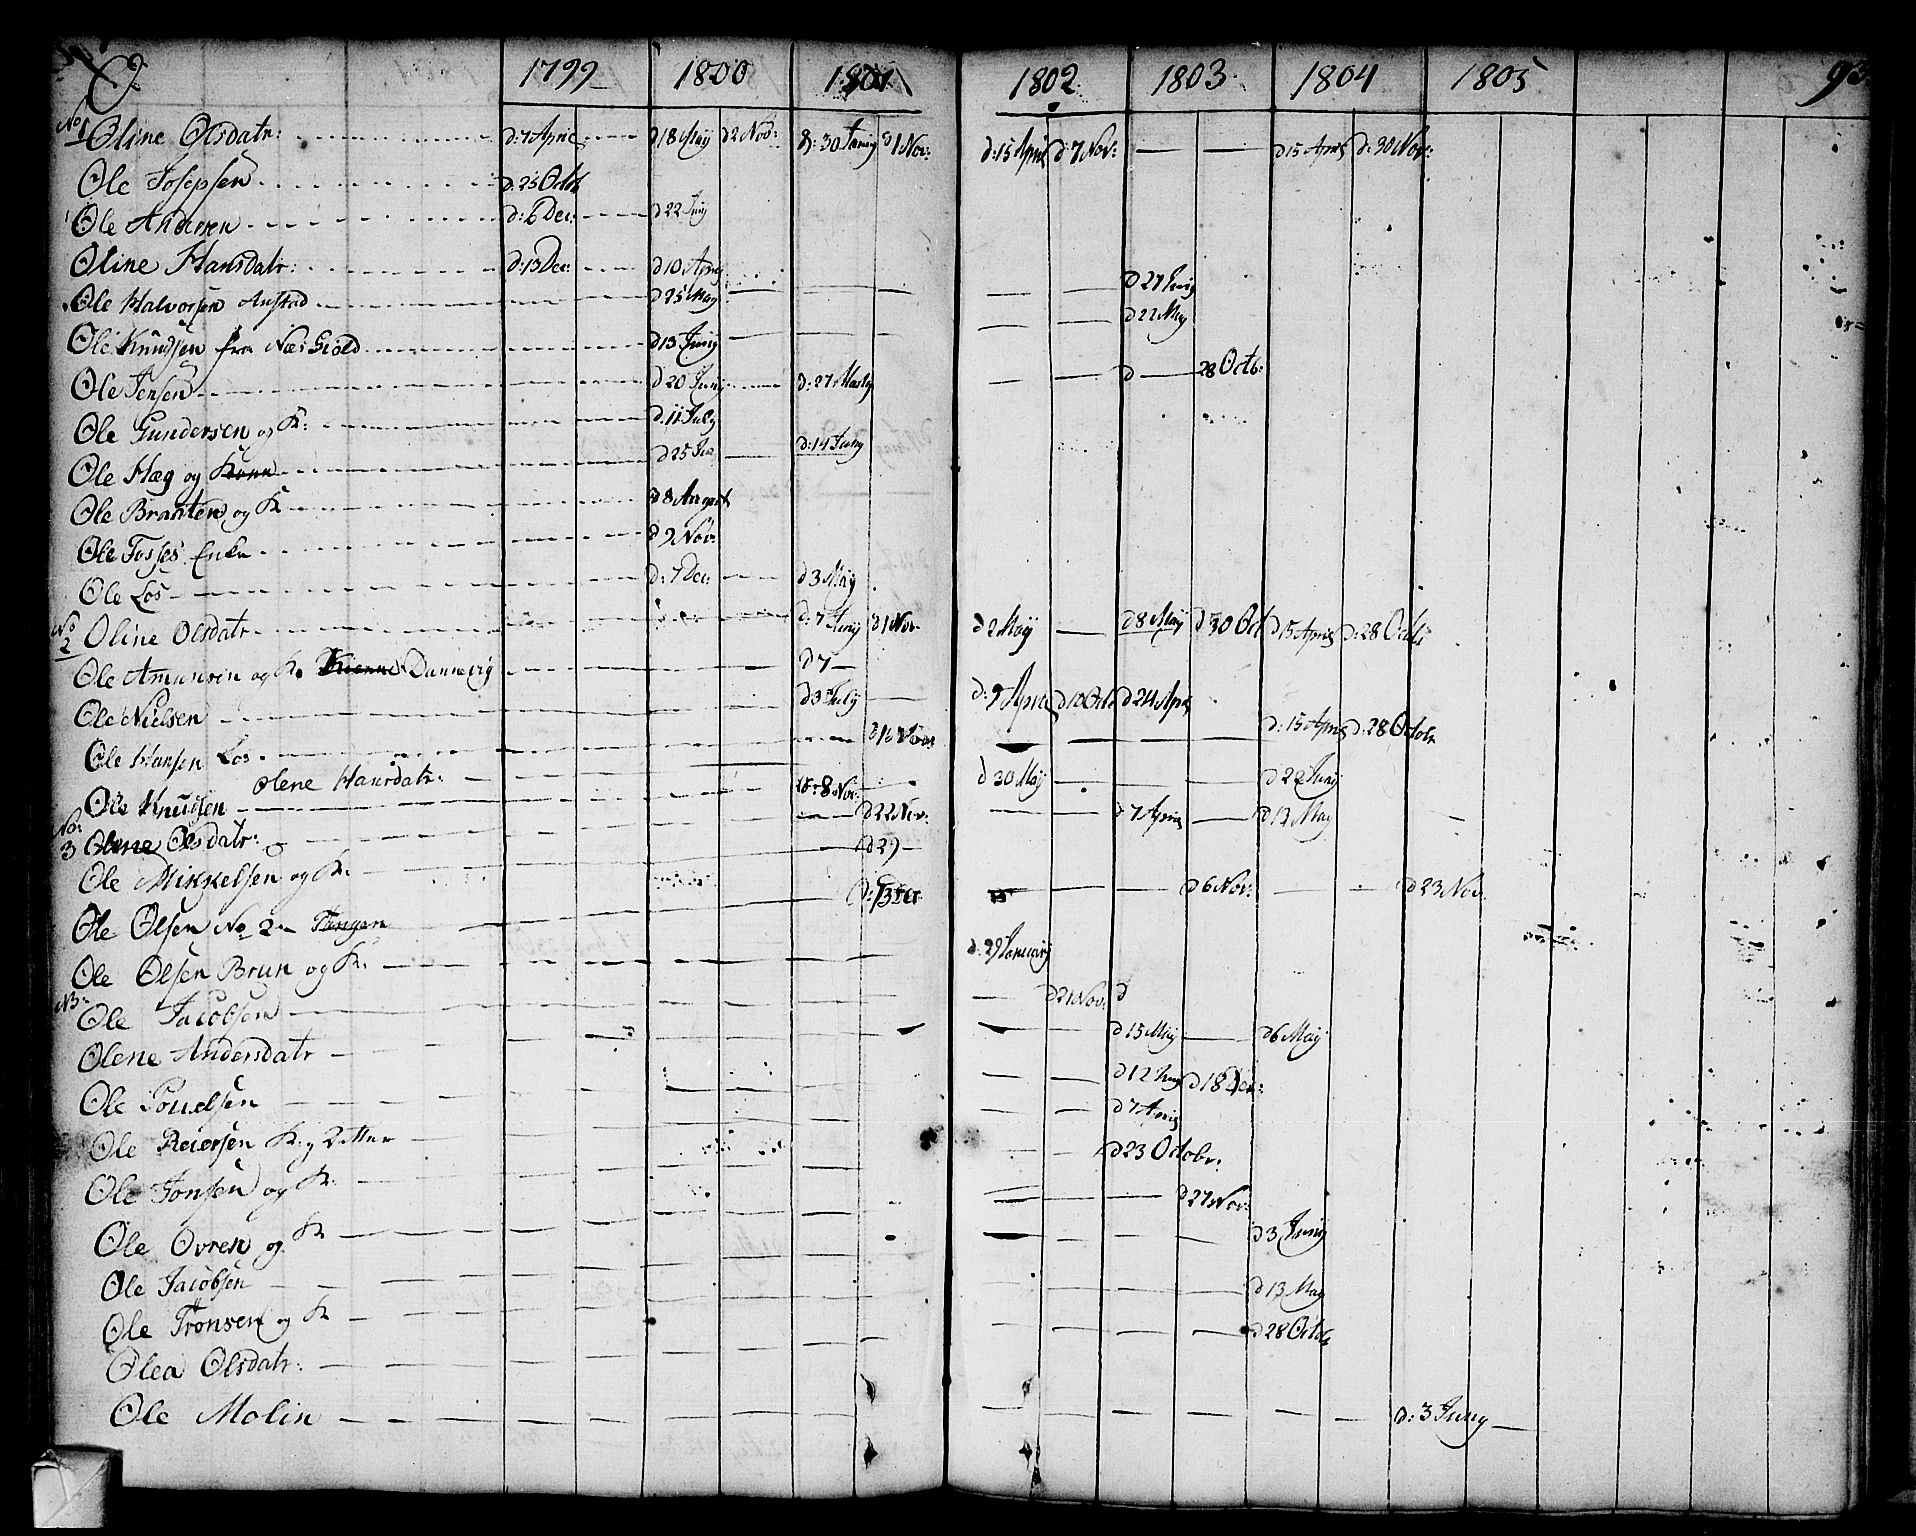 O.	1799	1800	1801	1802	1803	1804	1805	93
No 1 Oline Olsdatr:	d: 7 April	d 18 Maij	d 2 Nov:	d: 30 Junij	d 1 Nov:	d: 15 April	d: 7 Nov:	d 15 April	d: 30 Nov:
Ole Josepsen	d: 25 Octob
Ole Andersen	d: 6 Dec:	d 22 Junij
Oline Hansdatr:	d: 13 Dec:	d 10 April
Ole Halvorsen Anstad	d 25 May	d 27 Junij
Ole Knudsen fra Næs Gield	d 13 Junij	d 22 May
Ole Jensen	d 20 Junij	d: 27 Martij	d 28 Octb:
Ole Gundersen og K:	d. 11 July
Ole Hæg og Konn	d 25 Jul	d: 14 Juny
Ole Braaten og K	d 8 August
Ole Tosses Enke	d 9 Nov:
Ole Los	d: 7 Dec:	d 3 Maij
No 2 Oline Olsdatr	d: 7 Junij	d 1 Nov:	d 2 Maij	d 8 Maij	d 30 Oct	d 15 April	d: 28 Octb
Ole Amunsen og K. Dannevig	d 7
Ole Nielsen	d 3 July	d: 9 April	d 10 Octb	d 24 April
Ole Hansen Los	d 16 Nov	d: 15 April	d: 28 Octobr
Olene Hansdatr:	d 30 Maij	d 22 Junij
Ole Knudsen	d: 8 Nov:
No: 3 Olene Olsdatr:	d 22 Nov:	d 7 April	d 13 May
Ole Mikkelsen og K.	d 29
Ole Olsen No 2 Tangen	d: 13 Dec	d 6 Nov:	d 23 Nov:
Ole Olsen Brun og K:	d. 29 Januarij
NB: Ole Jacobsen	d 21 Nov:	d
Olene Andersdatr	d 15 Maij	d 6 Maij
Ole Pouelsen	d 12 Junij	d 18 Dec:
Ole Reiersen K: 	d 7 April
Ole Jonsen og K:	d 23 Octobr:
Ole Ovren og K	d 27 Nov:
Ole Jacobsen	d 3 Junij
Ole Tronsen og K	d 13 May
Olea Olsdatr:	d 28 Octob
Ole Molin	d: 3 Juny